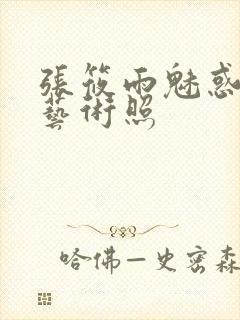 張筱雨魅惑
藝術照
哈佛－史密森